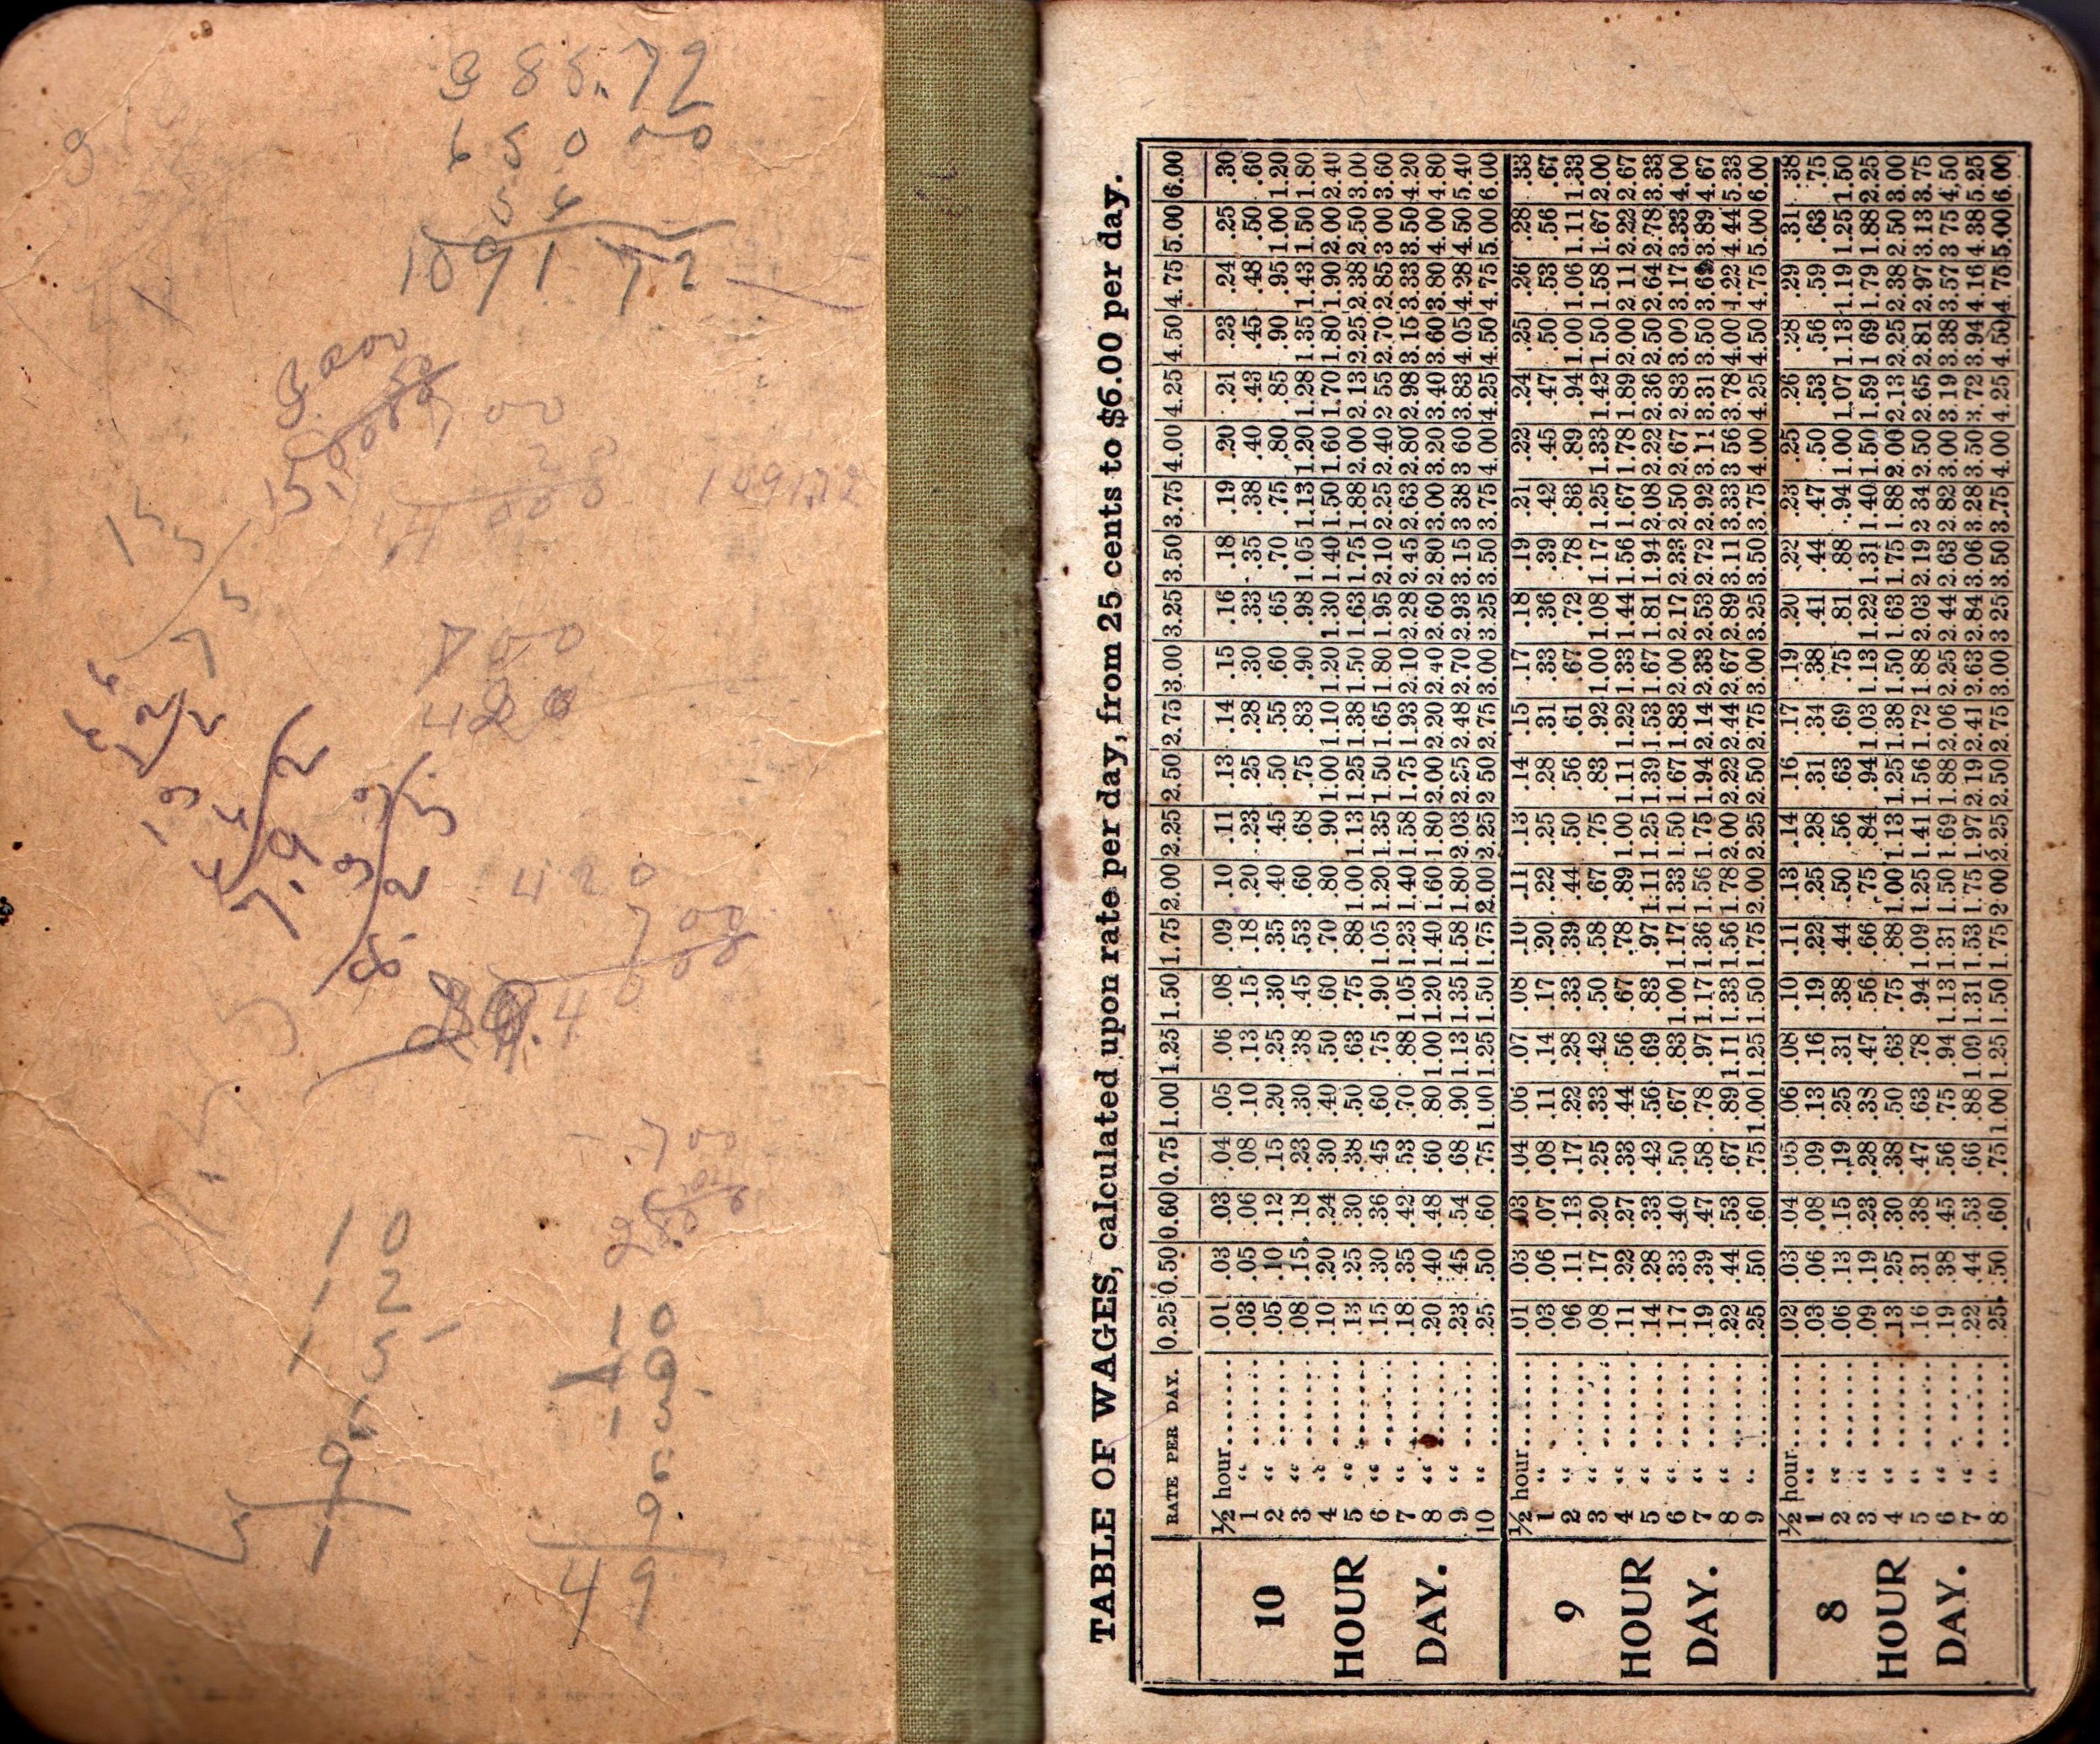 65000
54
1091 72
3000
700
109172
700
420
420
700
700
10
12
15
6
9
10
10
13
6
9
49
TABLE OF WAGES, calculated upon rate per day, from 25 cents to $6.00 per day.
RATE PER DAY. 0.25 0.50 0.60 0.75 1.00 1.25 1.50 1.75 2.00 2.25 2.50 2.75 3.00 3.25 3.50 3.75 4.00 4.25 4.50 4.75 5.00 6.00
10 HOUR DAY.
½ hour....... .01 .03 .03 .04 .05 .06 .08 .09 .10 .11 .13 .14 .15 .16 .18 .19 .20 .21 .23 .24 .25 .30
1 “ ....... .03 .05 .06 .08 .10 .13 .15 .18 .20 .23 .25 .28 .30 .33 .35 .38 .40 .43 .45 .48 .50 .60
2 “ ....... .05 .10 .12 .15 .20 .25 .30 .35 .40 .45 .50 .55 .60 .65 .70 .75 .80 .85 .90 .95 1.00 1.20
3 “ ....... .08 .15 .18 .23 .30 .38 .45 .53 .60 .68 .75 .83 .90 .98 1.05 1.13 1.20 1.28 1.35 1.43 1.50 1.80
4 “ ....... .10 .20 .24 .30 .40 .50 .60 .70 .80 .90 1.00 1.10 1.20 1.30 1.40 1.50 1.60 1.70 1.80 1.90 2.00 2.40
5 “ ....... .13 .25 .30 .38 .50 .63 .75 .88 1.00 1.13 1.25 1.38 1.50 1.63 1.75 1.88 2.00 2.13 2.25 2.38 2.50 3.00
6 “ ....... .15 .30 .36 .45 .60 .75 .90 1.05 1.20 1.35 1.50 1.65 1.80 1.95 2.10 2.25 2.40 2.55 2.70 2.85 3.00 3.60
7 “ ....... .18 .35 .42 .53 .70 .88 1.05 1.23 1.40 1.58 1.75 1.93 2.10 2.28 2.45 2.63 2.80 2.98 3.15 3.33 3.50 4.20
8 “ ....... .20 .40 .48 .60 .80 1.00 1.20 1.40 1.60 1.80 2.00 2.20 2.40 2.60 2.80 3.00 3.20 3.40 3.60 3.80 4.00 4.80
9 “ ....... .23 .45 .54 .68 .90 1.13 1.35 1.58 1.80 2.03 2.25 2.48 2.70 2.93 3.15 3 38 3 60 3.83 4.05 4.28 4.50 5.40
10 “ ....... .25 .50 .60 .75 1.00 1.25 1.50 1.75 2.00 2.25 2 50 2.75 3.00 3.25 3.50 3.75 4.00 4.25 4.50 4.75 5.00 6.00
9 HOUR DAY.
½ hour....... .01 .03 .03 .04 .06 .07 .08 .10 .11 .13 .14 .15 .17 .18 .19 .21 .22 .24 .25 .26 .28 .33
1 “ ....... .03 .06 .07 .08 .11 .14 .17 .20 .22 .25 .28 .31 .33 .36 .39 .42 .45 .47 .50 .53 .56 .67
2 “ ....... 06 .11 .13 .17 .22 .28 .33 .39 .44 .50 .56 .61 .67 .72 .78 .83 .89 .94 1.00 1.06 1.11 1.33
3 “ ....... .08 .17 .20 .25 .33 .42 .50 .58 .67 .75 .83 .92 1.00 1.08 1.17 1.25 1.33 1.42 1.50 1.58 1.67 2.00
4 “ ....... .11 .22 .27 .33 .44 .56 .67 .78 .89 1.00 1.11 1.22 1.33 1.44 1.56 1.67 1.78 1.89 2.00 2.11 2.22 2.67
5 “ ....... .14 .28 .33 .42 .56 .69 .83 .97 1.11 1.25 1.39 1.53 1.67 1.81 1.94 2.08 2.22 2.36 2.50 2.64 2.78 3.33
6 “ ....... .17 .33 .40 .50 .67 .83 1.00 1.17 1.33 1.50 1.67 1.83 2.00 2.17 2.33 2.50 2.67 2.83 3.00 3.17 3.33 4.00
7 “ ....... .19 .39 .47 .58 .78 .97 1.17 1.36 1.56 1.75 1.94 2.14 2.33 2.53 2.72 2.92 3.11 3.31 3.50 3.69 3.89 4.67
8 “ ....... .22 .44 .53 .67 .89 1.11 1.33 1.56 1.78 2.00 2.22 2.44 2.67 2.89 3.11 3.33 3 56 3.78 4.00 4.22 4.44 5.33
9 “ ....... .25 .50 .60 .75 1.00 1.25 1.50 1.75 2.00 2.25 2.50 2.75 3.00 3.25 3.50 3.75 4.00 4.25 4.50 4.75 5.00 6.00
8 HOUR DAY.
½ hour....... .02 .03 .04 .05 .06 .08 .10 .11 .13 .14 .16 .17 .19 .20 .22 .23 .25 .26 .28 .29 .31 .38
1 “ ....... .03 .06 .08 .09 .13 .16 .19 .22 .25 .28 .31 .34 .38 .41 .44 .47 .50 .53 .56 .59 .63 .75
2 “ ....... .06 .13 .15 .19 .25 .31 .38 .44 .50 .56 .63 .69 .75 .81 .88 .94 1.00 1.07 1.13 1.19 1.25 1.50
3 “ ....... .09 .19 .23 .28 .38 .47 .56 .66 .75 .84 .94 1.03 1.13 1.22 1.31 1.40 1.50 1.59 1 69 1.79 1.88 2.25
4 “ ....... .13 .25 .30 .38 .50 .63 .75 .88 1.00 1.13 1.25 1.38 1.50 1.63 1.75 1.88 2.00 2.13 2.25 2.38 2.50 3.00
5 “ ....... .16 .31 .38 .47 .63 .78 .94 1.09 1.25 1.41 1.56 1.72 1.88 2.03 2.19 2 34 2.50 2.65 2.81 2.97 3.13 3.75
6 “ ....... .19 .38 .45 .56 .75 .94 1.13 1.31 1.50 1.69 1.88 2.06 2.25 2.44 2.63 2.82 3.00 3.19 3.38 3.57 3 75 4.50
7 “ ....... .22 .44 .53 .66 .88 1.09 1.31 1.53 1.75 1.97 2.19 2.41 2.63 2.84 3.06 3.28 3.50 3.72 3.94 4.16 4.38 5.25
8 “ ....... .25 .50 .60 .75 1.00 1.25 1.50 1.75 2 00 2.25 2.50 2.75 3.00 3 25 3.50 3.75 4.00 4.25 4.50 4.75 5.00 6.00